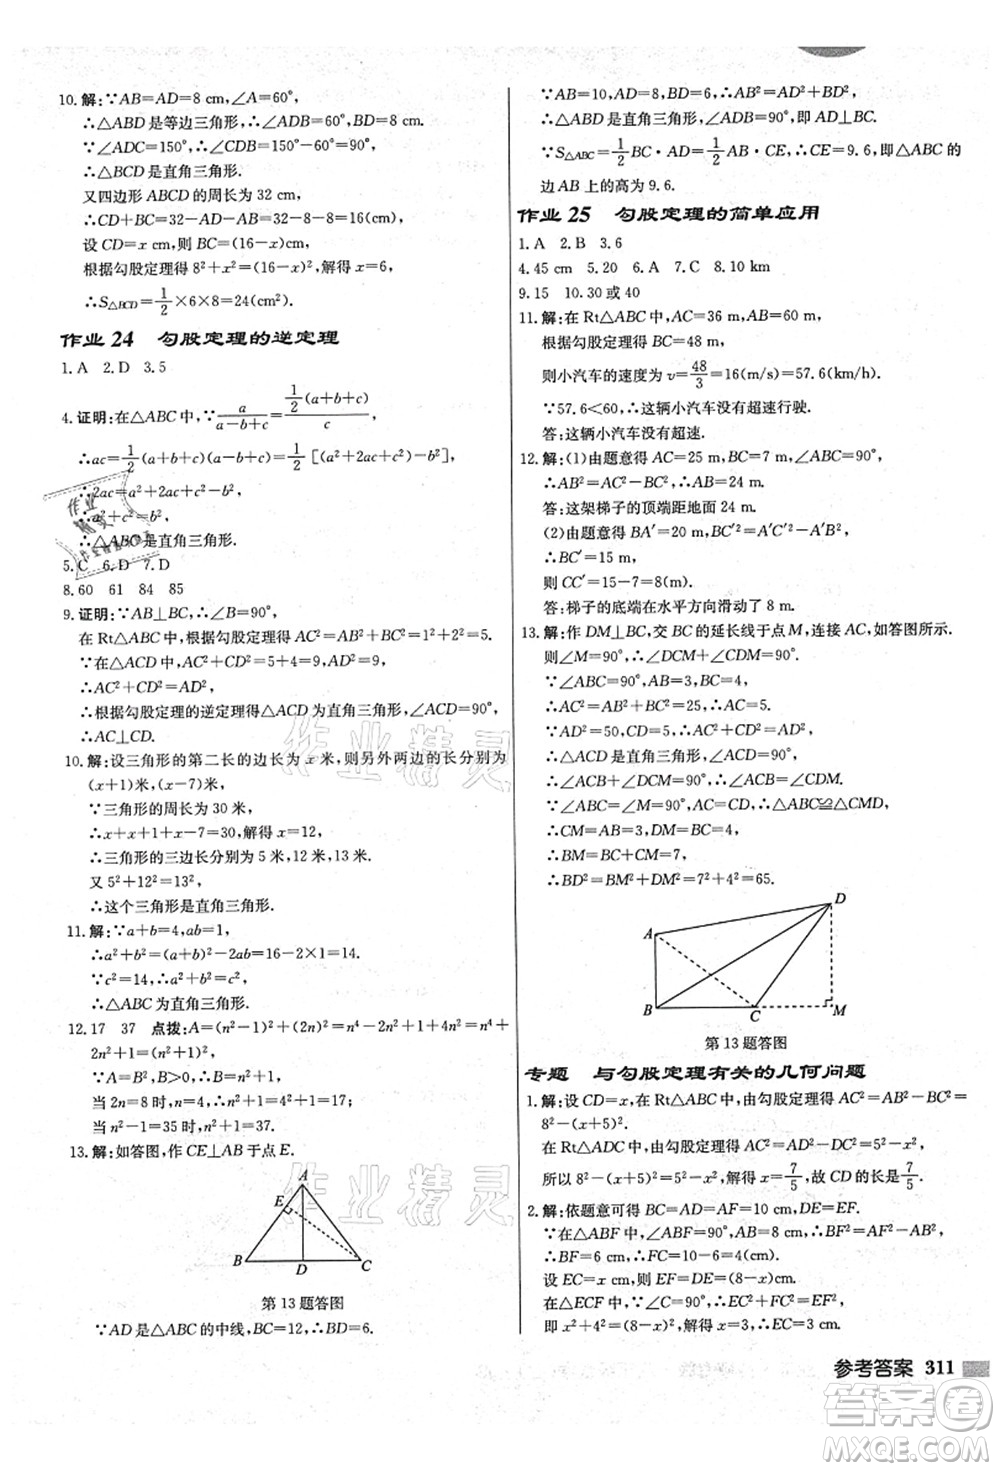 10. 解:∵AB=AD=8 cm,∠A=60°,
∴△ABD是等边三角形,∴∠ADB=60°,BD=8 cm.
∵∠ADC=150°,∴∠CDB=150°-60°=90°,
∴△BCD是直角三角形.
又四边形ABCD的周长为 32 cm,
∴CD+BC=32-AD-AB=32-8-8=16(cm).
设 CD=x cm,则 BC=(16-x)cm,
根据勾股定理得 8²+x²=(16-x)²,解得 x=6,
∴S△BCD=1/2×6×8=24(cm²).
作业 24 勾股定理的逆定理
1. A 2. D 3. 5
4. 证明:在△ABC中,∵a/(a-b+c)=1/2(a+b+c)/c,
∴ac=1/2(a+b+c)(a-b+c)=1/2[(a²+2ac+c²)-b²],
∴2ac=a²+2ac+c²-b²,
∴a²+c²=b²,
∴△ABC是直角三角形.
5. C 6. D 7. D
8. 60 61 84 85
9. 证明:∵AB⊥BC,∴∠B=90°,
在 Rt△ABC中,根据勾股定理得 AC²=AB²+BC²=1²+2²=5.
∵在△ACD中,AC²+CD²=5+4=9,AD²=9,
∴AC²+CD²=AD²,
∴根据勾股定理的逆定理得△ACD为直角三角形,∠ACD=90°,
∴AC⊥CD.
10. 解:设三角形的第二长的边长为 x 米,则另外两边的长分别为
(x+1)米,(x-7)米.
∵三角形的周长为 30 米,
∴x+x+1+x-7=30,解得 x=12,
∴三角形的三边长分别为 5 米,12 米,13 米.
又 5²+12²=13²,
∴这个三角形是直角三角形.
11. 解:∵a+b=4,ab=1,
∴a²+b²=(a+b)²-2ab=16-2×1=14.
∵c²=14,∴a²+b²=c²,
∴△ABC为直角三角形.
12. 17 37 点拨:A=(n²-1)²+(2n)²=n⁴-2n²+1+4n²=n⁴+
2n²+1=(n²+1)².
∵A=B²,B>0,∴B=n²+1.
当 2n=8 时,n=4,∴n²+1=4²+1=17;
当 n²-1=35 时,n²+1=37.
13. 解:如答图,作 CE⊥AB 于点 E.
A
E
B D C
第 13 题答图
∵AD是△ABC的中线,BC=12,∴BD=6.
∵AB=10,AD=8,BD=6,∴AB²=AD²+BD²,
∴△ABD是直角三角形,∴∠ADB=90°,即AD⊥BC.
∵S△ABC=1/2BC·AD=1/2AB·CE,∴CE=9.6,即△ABC的
边AB上的高为 9.6.
作业 25 勾股定理的简单应用
1. A 2. B 3. 6
4. 45 cm 5. 20 6. A 7. C 8. 10 km
9. 15 10. 30 或 40
11. 解:在 Rt△ABC中,AC=36 m,AB=60 m,
根据勾股定理得 BC=48 m,
则小汽车的速度为 v=48/3=16(m/s)=57.6(km/h).
∵57.6<60,∴这辆小汽车没有超速行驶.
答:这辆小汽车没有超速.
12. 解:(1)由题意得 AC=25 m,BC=7 m,∠ABC=90°,
∴AB²=25²-7²=576,∴AB=24 m.
答:这架梯子的顶端距地面 24 m.
(2)由题意得 BA′=20 m,BC′²=25²-20²=15²,
∴BC′=15 m,
则 CC′=15-7=8(m).
答:梯子的底端在水平方向滑动了 8 m.
13. 解:作 DM⊥BC,交 BC 的延长线于点 M,连接 AC,如答图所示.
则∠M=90°,∴∠DCM+∠CDM=90°.
∵∠ABC=90°,AB=3,BC=4,
∴AC²=AB²+BC²=25,∴AC=5.
∵AD=5√2,CD=5,∴AD²=AC²+CD²,
∴△ACD是直角三角形,∠ACD=90°,
∴∠ACB+∠DCM=90°,∴∠ACB=∠CDM.
∵∠ABC=∠M=90°,AC=CD,∴△ABC≌△CMD,
∴CM=AB=3,DM=BC=4,
∴BM=BC+CM=7,
∴BD²=BM²+DM²=7²+4²=65.
D
A
B C M
第 13 题答图
专题 与勾股定理有关的几何问题
1. 解:设 CD=x,在 Rt△ABC中,由勾股定理得 AC²=AB²-BC²=
8²-(x+5)².
在 Rt△ADC中,由勾股定理得 AC²=AD²-CD²=5²-x²,
所以 8²-(x+5)²=5²-x²,解得 x=7/5,故 CD 的长为 7/5.
2. 解:依题意可得 BC=AD=AF=10 cm,DE=EF.
∵在△ABF中,∠ABF=90°,∴BF²=AF²-AB²=10²-8²=6²,
∴BF=6 cm,∴FC=10-6=4(cm).
设 EC=x cm,则 EF=DE=(8-x)cm.
∵在△ECF中,∠C=90°,∴EC²+FC²=EF²,
即 x²+4²=(8-x)²,解得 x=3,即 EC 的长为 3 cm.
参考答案 311
作业精灵
作业精灵
答案圈
MXQE.COM